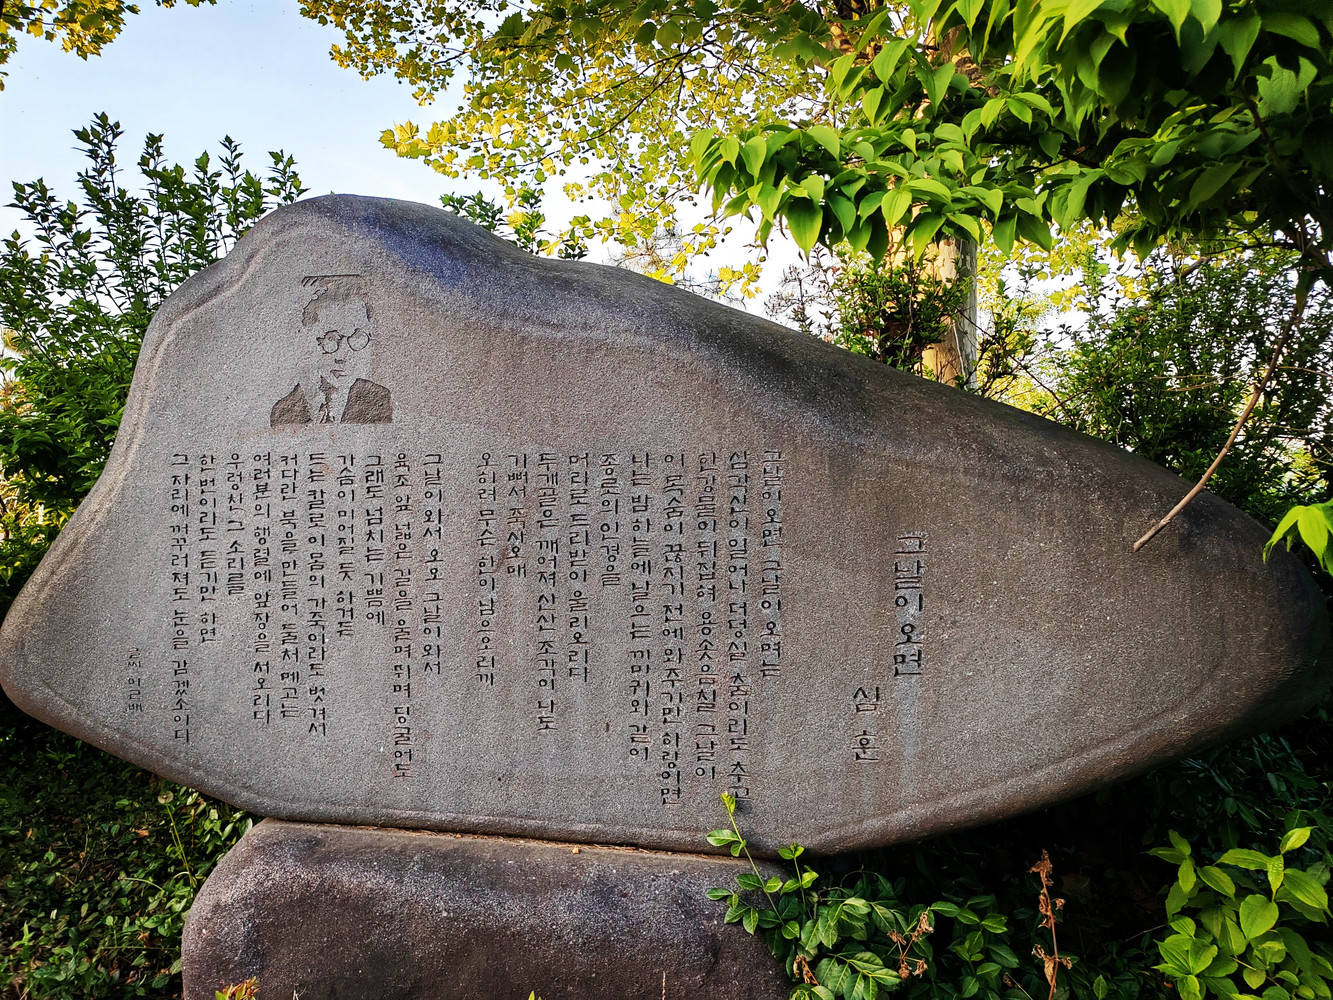 그날이 오면
심 훈
그날이 오면 그날이 오며는
삼각산이 일어나 더덩실 춤이라도 추고
한강물이 뒤집혀 용솟음칠 그날이
이 목숨이 끊지기 전에 와주기만 하량이면
나는 밤하늘에 날으는 까마귀와 같이
종로의 인경을
머리로 드리받아 울리오리다
두개골은 깨어져 산산 조각이 나도
기뻐서 죽사오매
오히려 무슨 한이 남으오리까
그날이 와서 오오 그날이 와서
육조 앞 넓은 길을 울며 뛰며 딩굴어도
그래도 넘치는 기쁨에
가슴이 미어질 듯 하거든
드는 칼로 이 몸의 가죽이라도 벗겨서
커다란 북을 만들어 둘처 메고는
여러분의 행렬에 앞장을 서오리다
우렁찬 그 소리를
한번이라도 듣기만 하면
그 자리에 꺼꾸러져도 눈을 감겠소이다
글씨